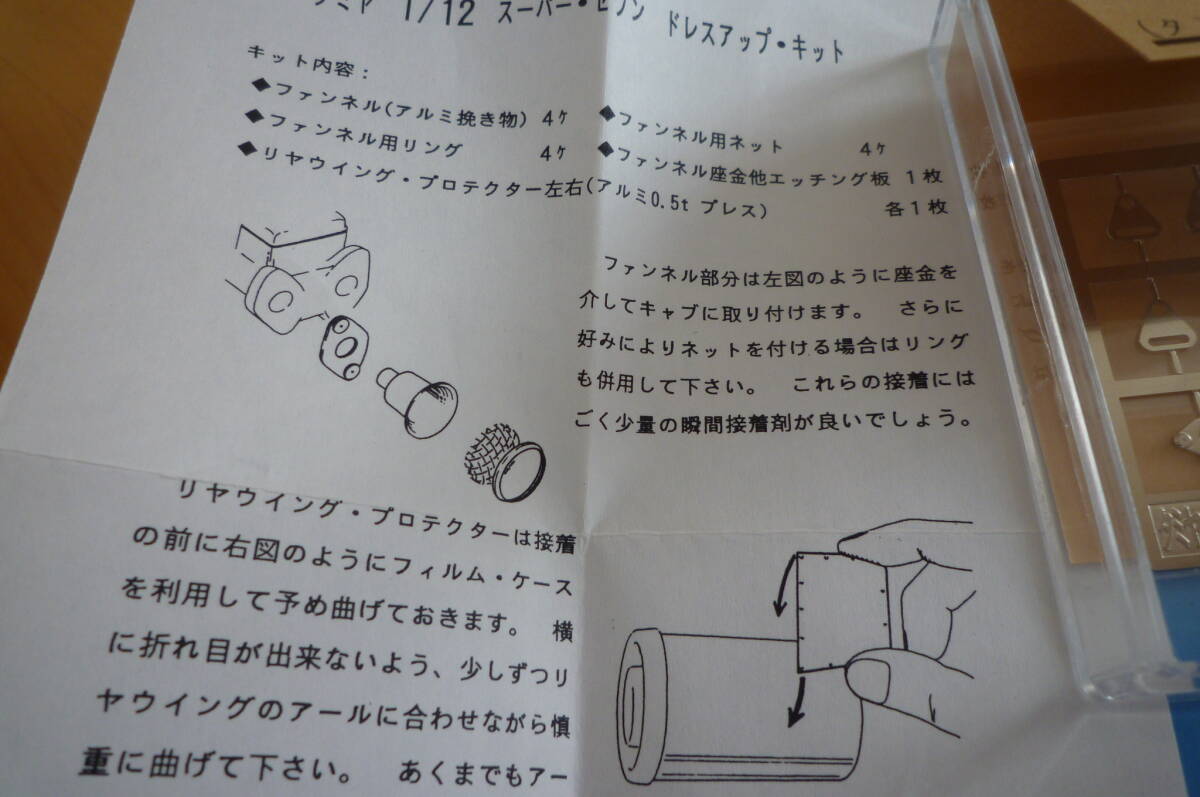 タミヤ 1/12 スーパー・セブン ドレスアップ・キット
キット内容：
◆ファンネル(アルミ挽き物) 4ケ
◆ファンネル用ネット 4ケ
◆ファンネル用リング 4ケ
◆ファンネル座金他エッチング板 1枚
◆リヤウイング・プロテクター左右(アルミ0.5t プレス) 各1枚
ファンネル部分は左図のように座金を
介してキャブに取り付けます。 さらに
好みによりネットを付ける場合はリング
も併用して下さい。 これらの接着には
ごく少量の瞬間接着剤が良いでしょう。
リヤウイング・プロテクターは接着
の前に右図のようにフィルム・ケース
を利用して予め曲げておきます。 横
に折れ目が出来ないよう、少しずつリ
ヤウイングのアールに合わせながら慎
重に曲げて下さい。 あくまでもアー